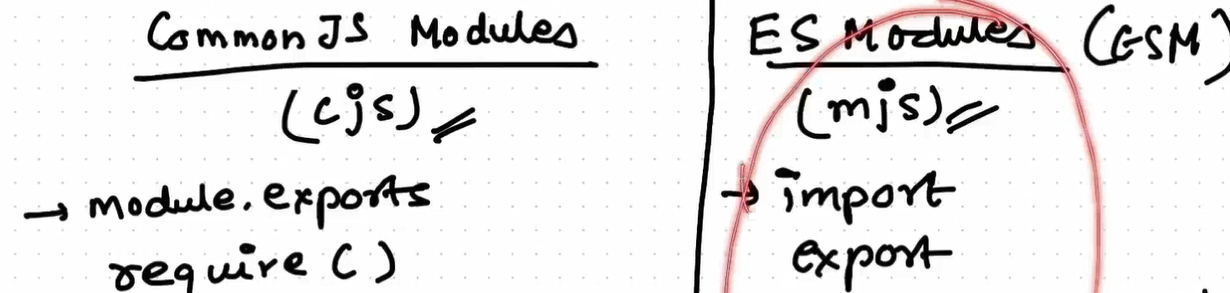 CommonJS Modules
(cjs)
→ module.exports
require ( )
ES Modules (ESM)
(mjs)
→ import
export